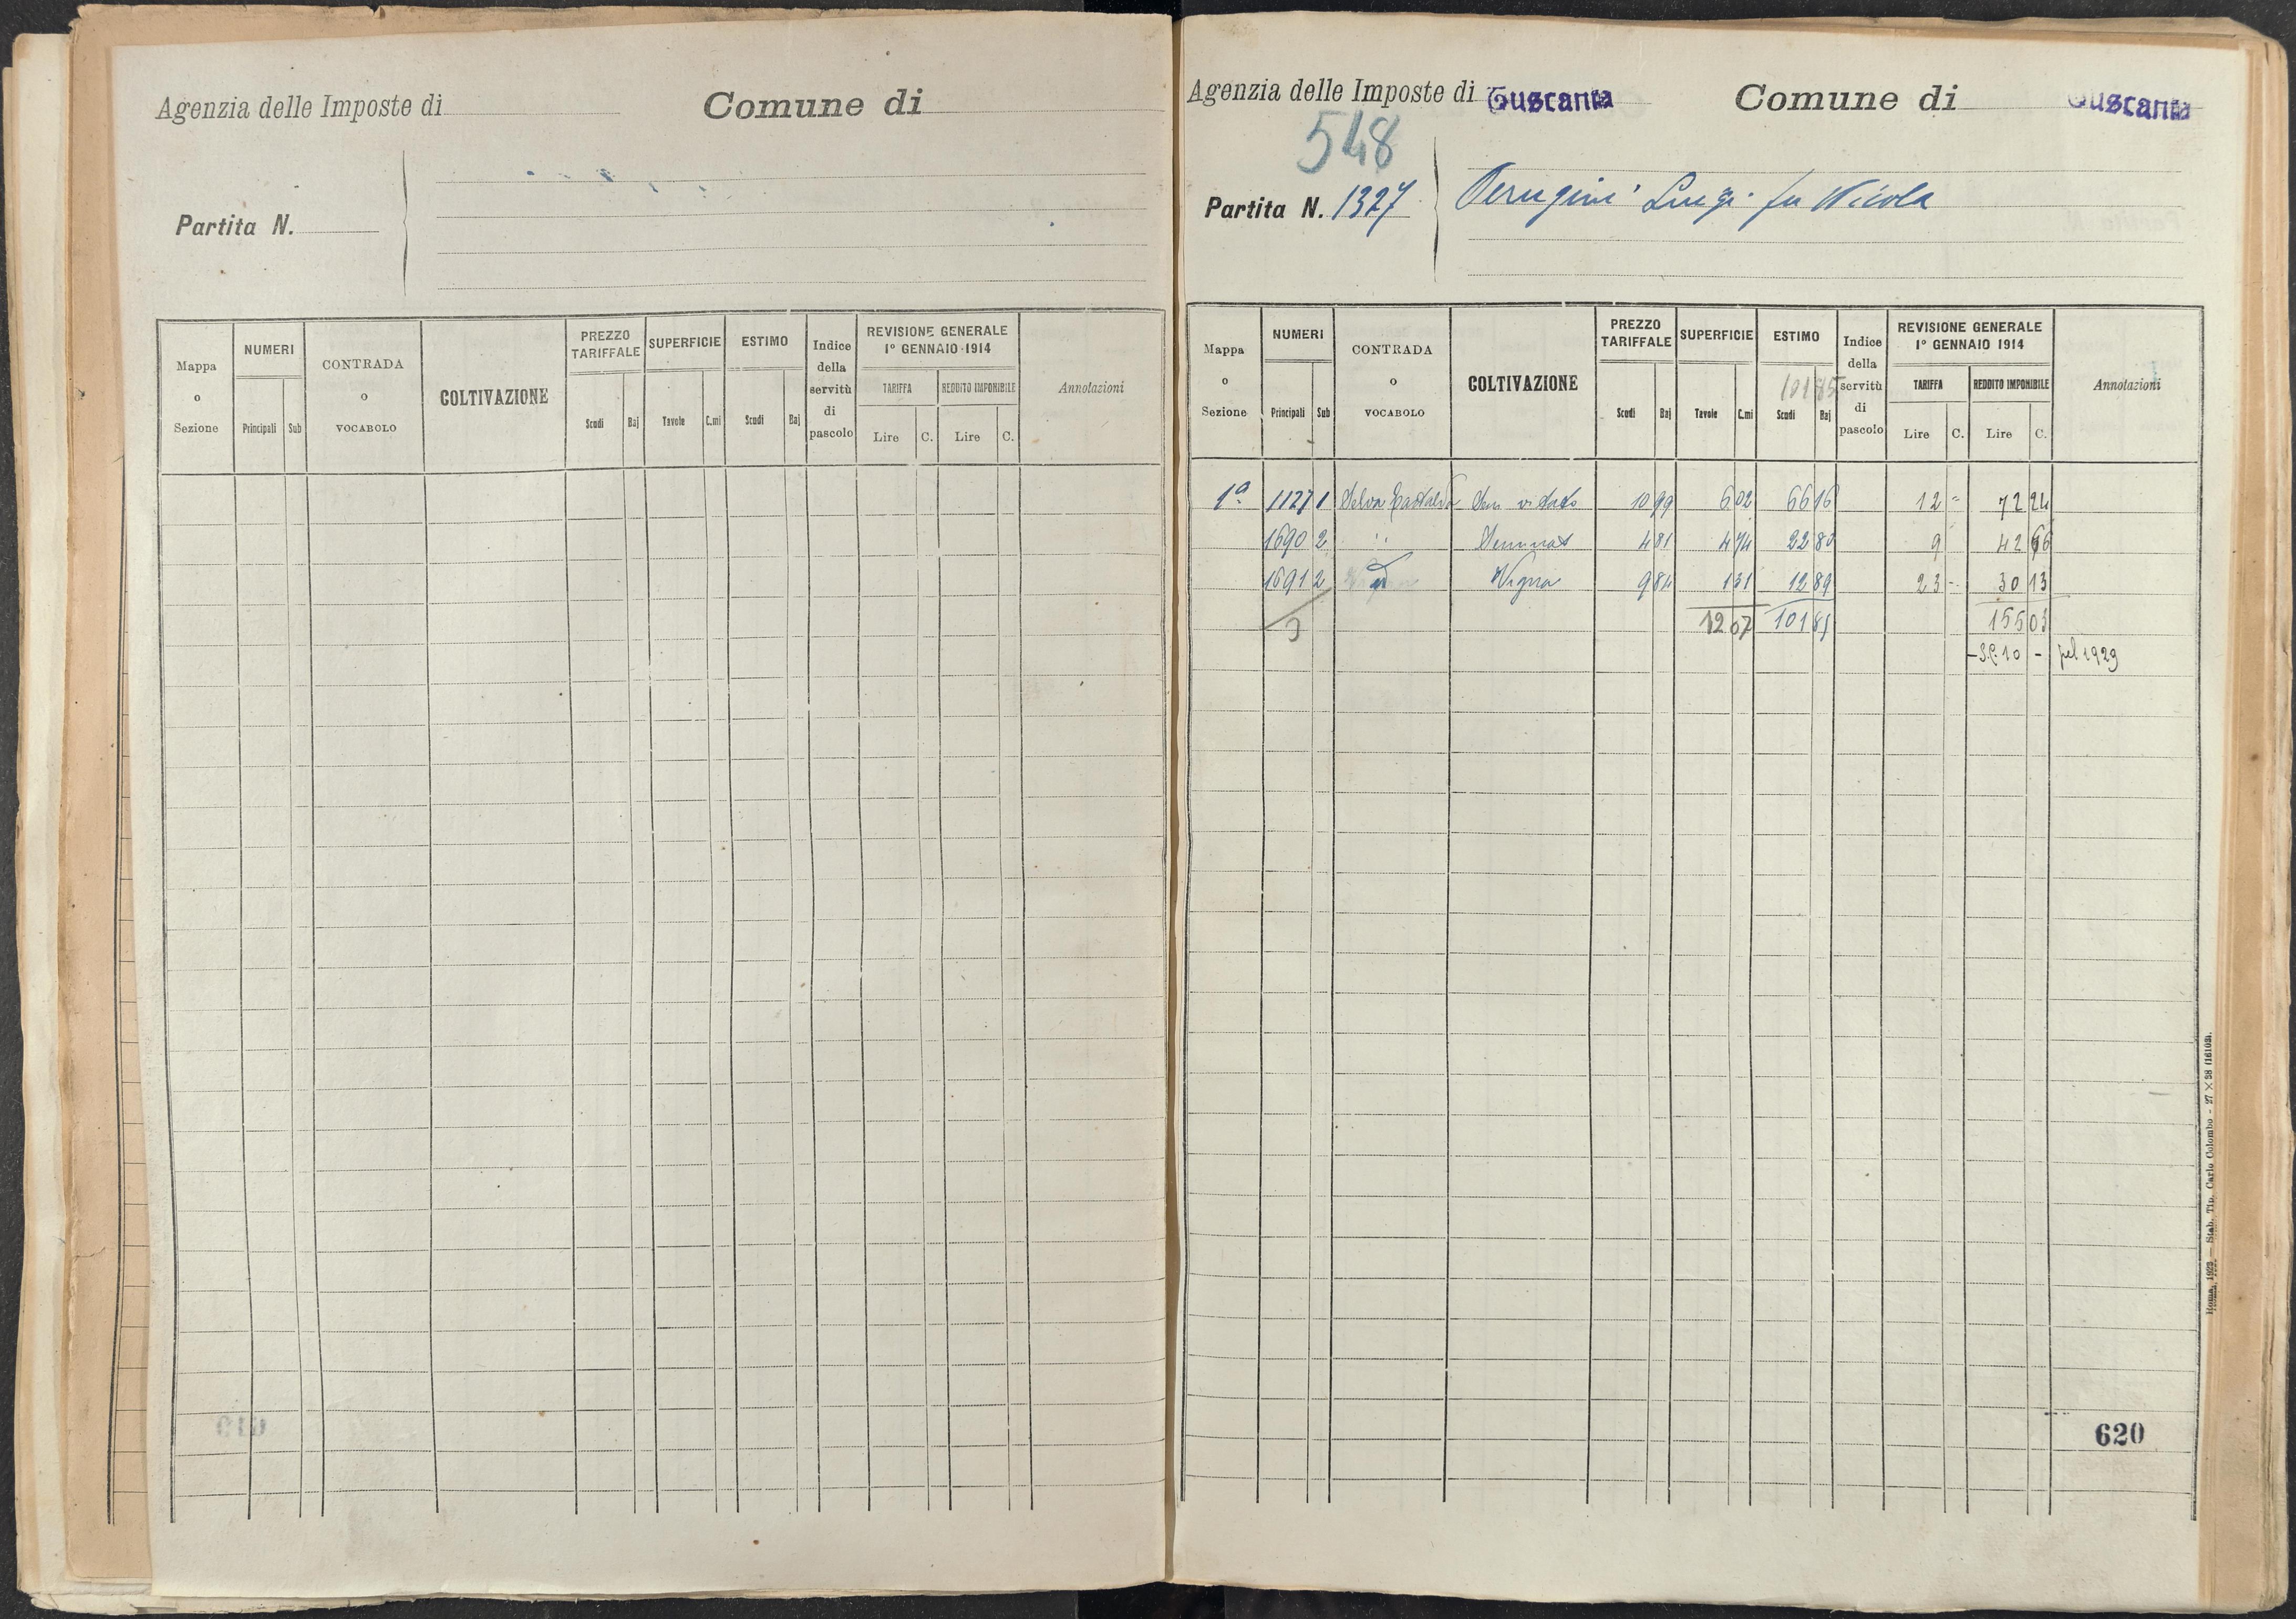 Agenzia delle Imposte di
Comune di
Partita N.
Mappa o Sezione
NUMERI
Principali Sub
CONTRADA o VOCABOLO
COLTIVAZIONE
PREZZO TARIFFALE
Scudi Baj
SUPERFICIE
Tavole C.mi
ESTIMO
Scudi Baj
Indice della servitù di pascolo
REVISIONE GENERALE 1° GENNAIO 1914
TARIFFA
Lire C.
REDDITO IMPONIBILE
Lire C.
Annotazioni
Agenzia delle Imposte di Tuscania
Comune di Tuscania
548
Partita N. 1327
Perugini Luigi fu Nicola
Mappa o Sezione
NUMERI
Principali Sub
CONTRADA o VOCABOLO
COLTIVAZIONE
PREZZO TARIFFALE
Scudi Baj
SUPERFICIE
Tavole C.mi
ESTIMO
10185
Scudi Baj
Indice della servitù di pascolo
REVISIONE GENERALE 1° GENNAIO 1914
TARIFFA
Lire C.
REDDITO IMPONIBILE
Lire C.
Annotazioni
1a 1127 1 Selva Sem vitato 10 99 6 02 66 16 12 - 72 24
1690 2 " Seminat 4 81 4 74 22 80 9 42 66
1691 2 Vigna 9 84 1 31 12 89 23 - 30 13
3 12 07 101 85 155 03
- S.C. 10 - pel 1929
620
Roma, 1922 — Stab. Tip. Carlo Colombo - 27 × 38 (16103).